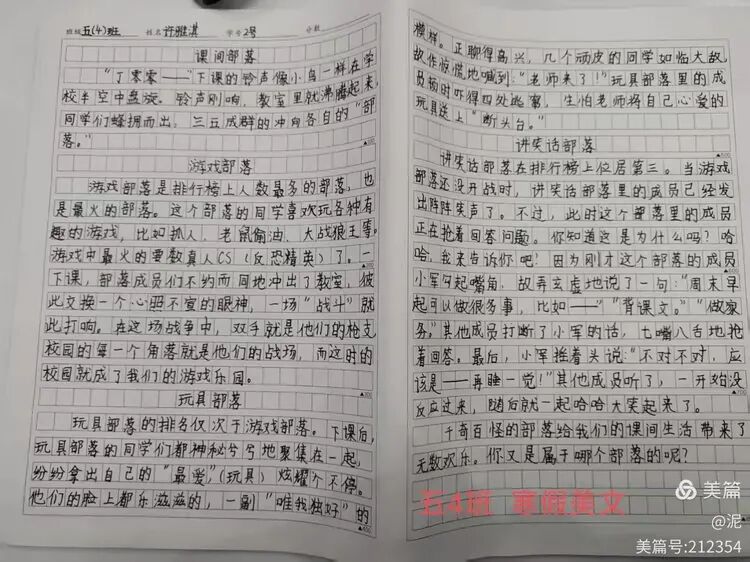 班级 五(4)班 姓名 许雅淇 学号 2号 分数
课间部落
“丁零零——”下课的铃声像小鸟一样在学
校半空中盘旋。铃声刚响，教室里就沸腾起来，
同学们蜂拥而出，三五成群的冲向各自的“部
落。”
游戏部落
游戏部落是排行榜上人数最多的部落，也
是最火的部落。这个部落的同学喜欢玩各种有
趣的游戏，比如抓人、老鼠偷油、大战狼王等。
游戏中最火的要数真人CS（反恐精英）了。一
下课，部落成员们不约而同地冲出了教室，彼
此交换一个心照不宣的眼神，一场“战斗”就
此打响。在这场战争中，双手就是他们的枪支
校园的每一个角落就是他们的战场，而这时的
校园就成了我们的游戏乐园。
玩具部落
玩具部落的排名仅次于游戏部落。下课后，
玩具部落的同学们都神秘兮兮地聚集在一起，
纷纷拿出自己的“最爱”（玩具）炫耀个不停。
他们的脸上都乐滋滋的，一副“唯我独好”的
模样。正聊得高兴，几个顽皮的同学如临大敌，
故作惊慌地喊到：“老师来了！”玩具部落里的成
员顿时吓得四处逃窜，生怕老师将自己心爱的
玩具送上“断头台。”
讲笑话部落
讲笑话部落在排行榜上位居第三。当游戏
部落还没开战时，讲笑话部落里的成员已经发
出阵阵笑声了。不过，此时这个部落里的成员
正在抢着回答问题。你知道这是为什么吗？哈
哈，我来告诉你吧！因为刚才这个部落的成员
小军勾起嘴角，故弄玄虚地说了一句：“周末早
起可以做很多事，比如——”“背课文。”“做家
务。”其他成员打断了小军的话，七嘴八舌地抢
着回答。最后，小军摇着头说：“不对不对，应
该是——再睡一觉！”其他成员听了，一开始没
反应过来，随后就一起哈哈大笑起来了。
千奇百怪的部落给我们的课间生活带来了
无数欢乐。你又是属于哪个部落的呢？
五4班 寒假美文
美篇
@泥
美篇号:212354